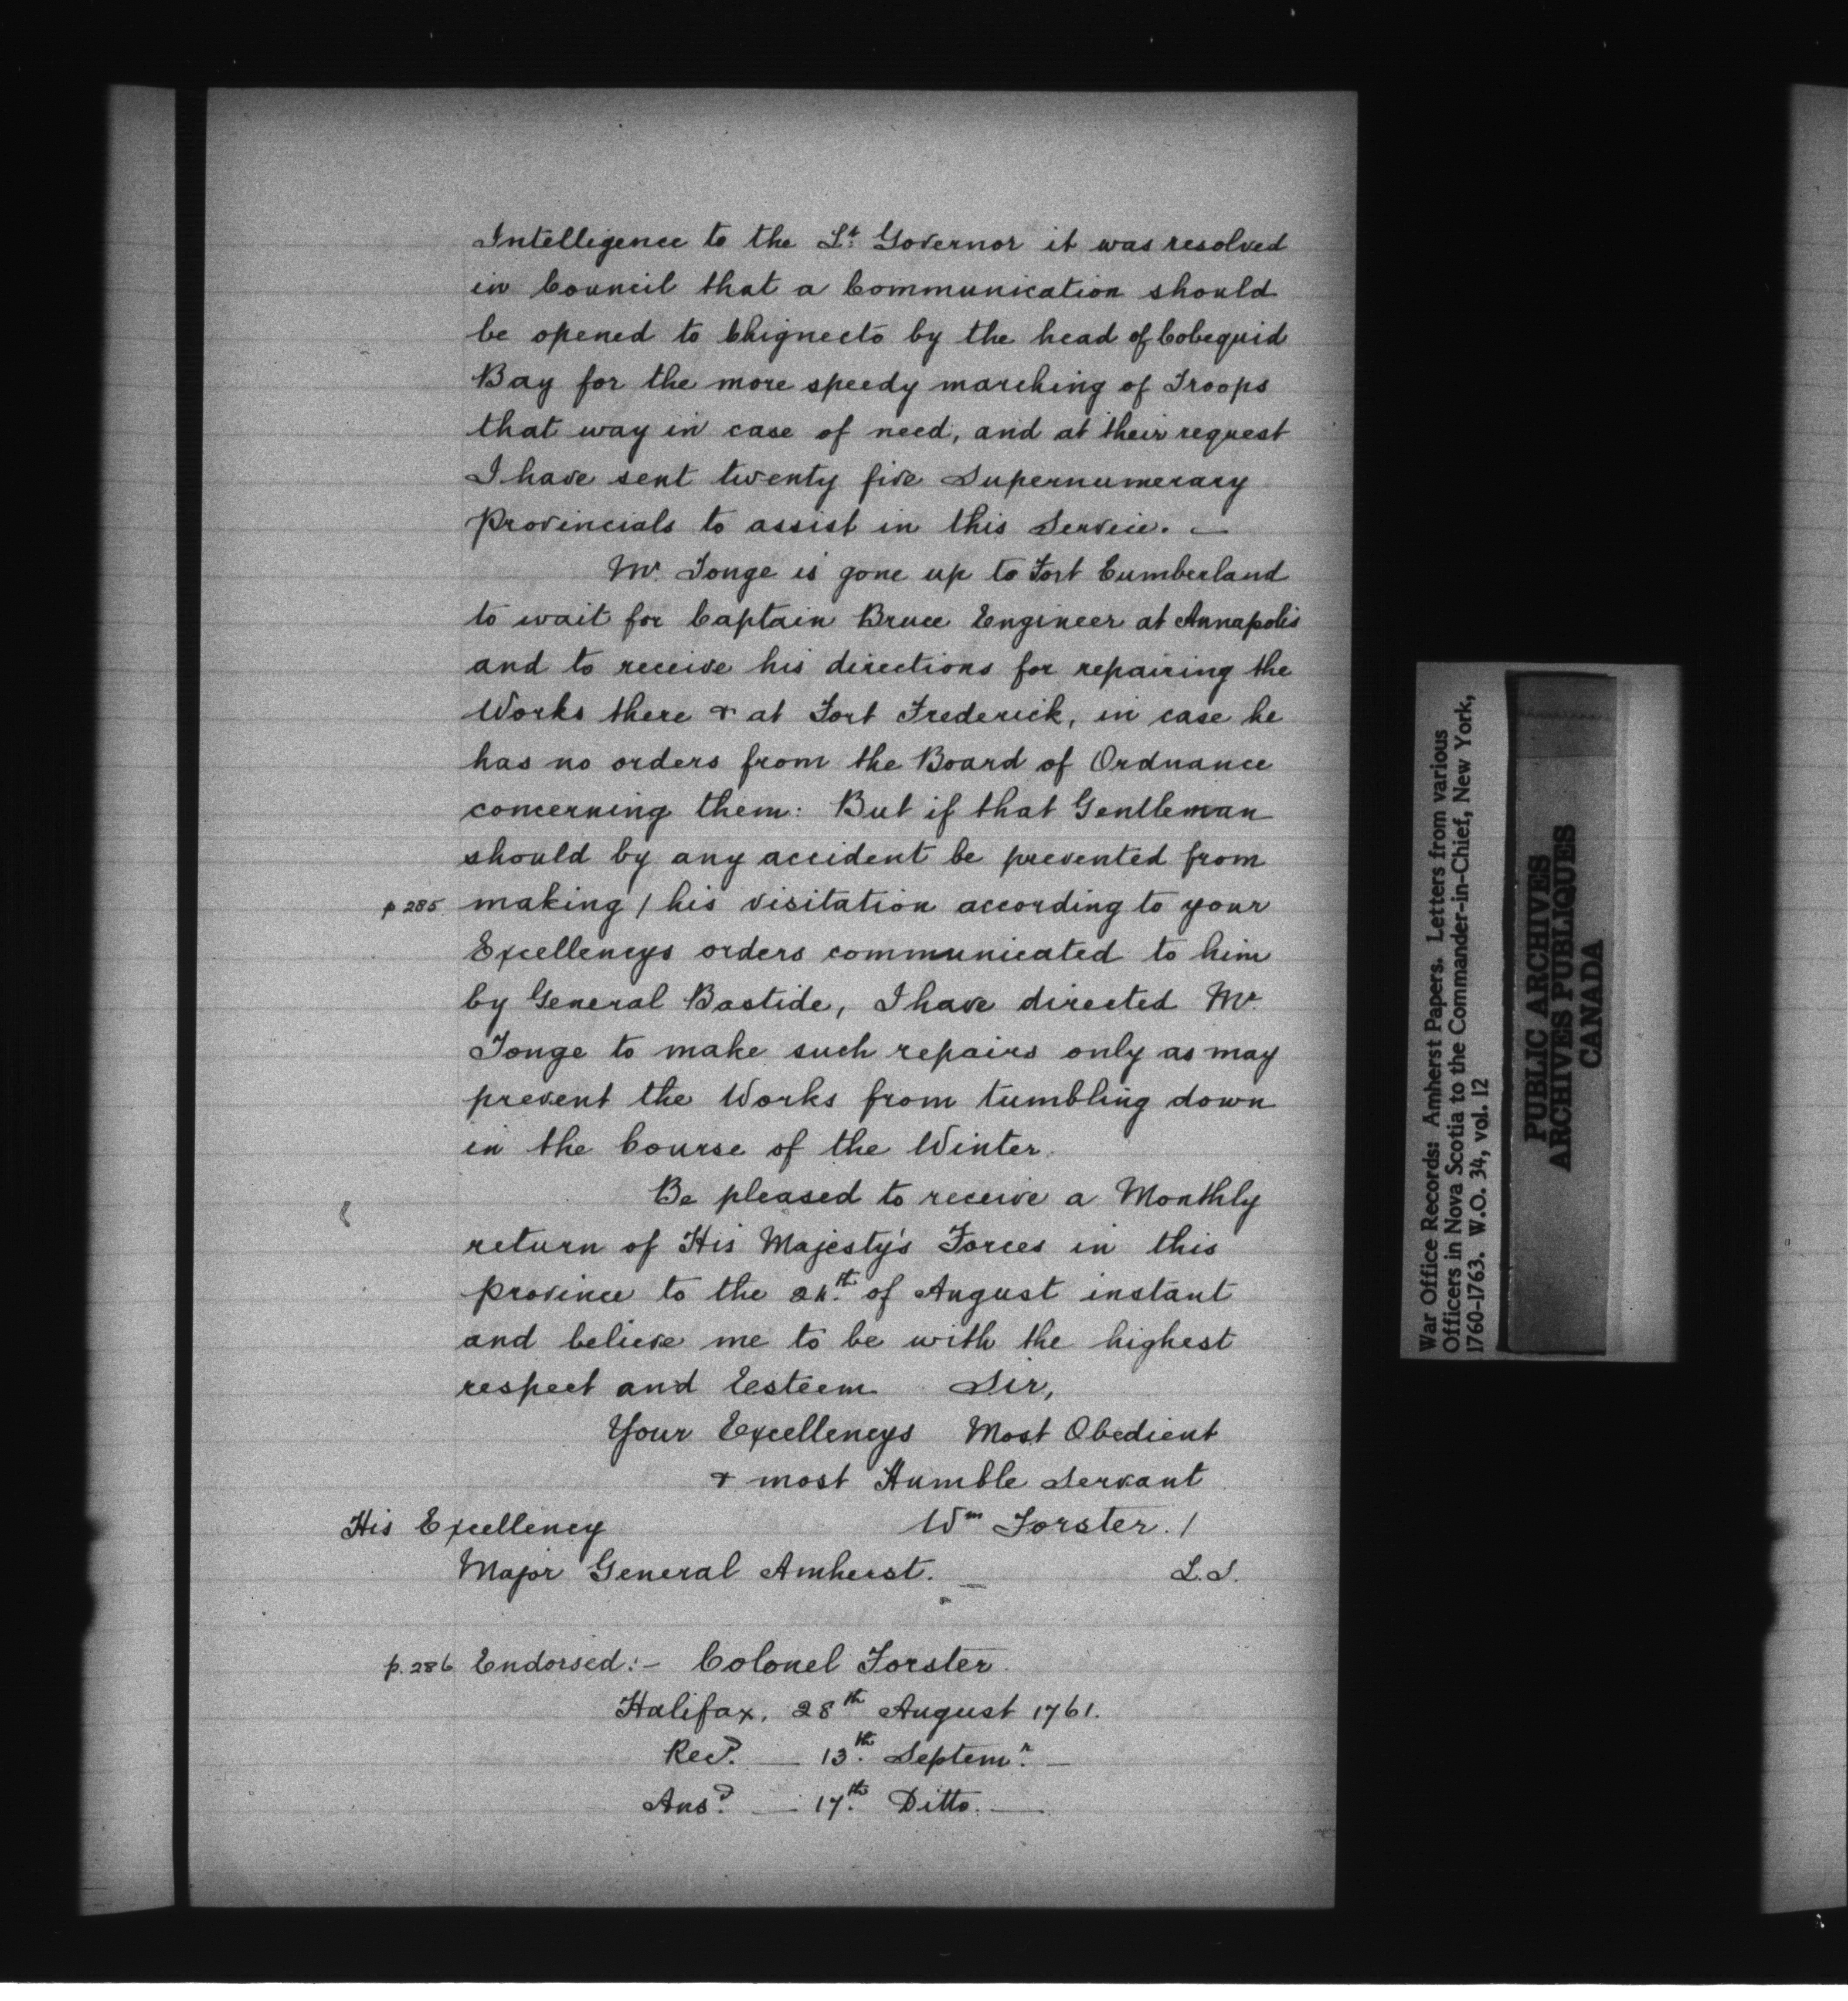 Intelligence to the Lt. Governor it was resolved
in Council that a Communication should
be opened to Chignecto by the head of Cobequid
Bay for the more speedy marching of Troops
that way in case of need, and at their request
I have sent twenty five Supernumerary
Provincials to assist in this Service. —
Mr. Tonge is gone up to Fort Cumberland
to wait for Captain Bruce Engineer at Annapolis
and to receive his directions for repairing the
Works there & at Fort Frederick, in case he
has no orders from the Board of Ordnance
concerning them: But if that Gentleman
should by any accident be prevented from
p 285 making / his visitation according to your
Excellencys orders communicated to him
by General Bastide, I have directed Mr.
Tonge to make such repairs only as may
prevent the Works from tumbling down
in the Course of the Winter.
Be pleased to receive a Monthly
return of His Majesty's Forces in this
Province to the 24th. of August instant
and believe me to be with the highest
respect and Esteem Sir,
Your Excellencys Most Obedient
& most Humble Servant
His Excellency Wm Forster. /
Major General Amherst. —
p. 286 Endorsed:- Colonel Forster.
Halifax, 28th August 1761.
Recd. — 13th. Septemr. —
Ansd. — 17th. Ditto. —
War Office Records: Amherst Papers. Letters from various
Officers in Nova Scotia to the Commander-in-Chief, New York,
1760-1763. W.O. 34, vol. 12
PUBLIC ARCHIVES
ARCHIVES PUBLIQUES
CANADA